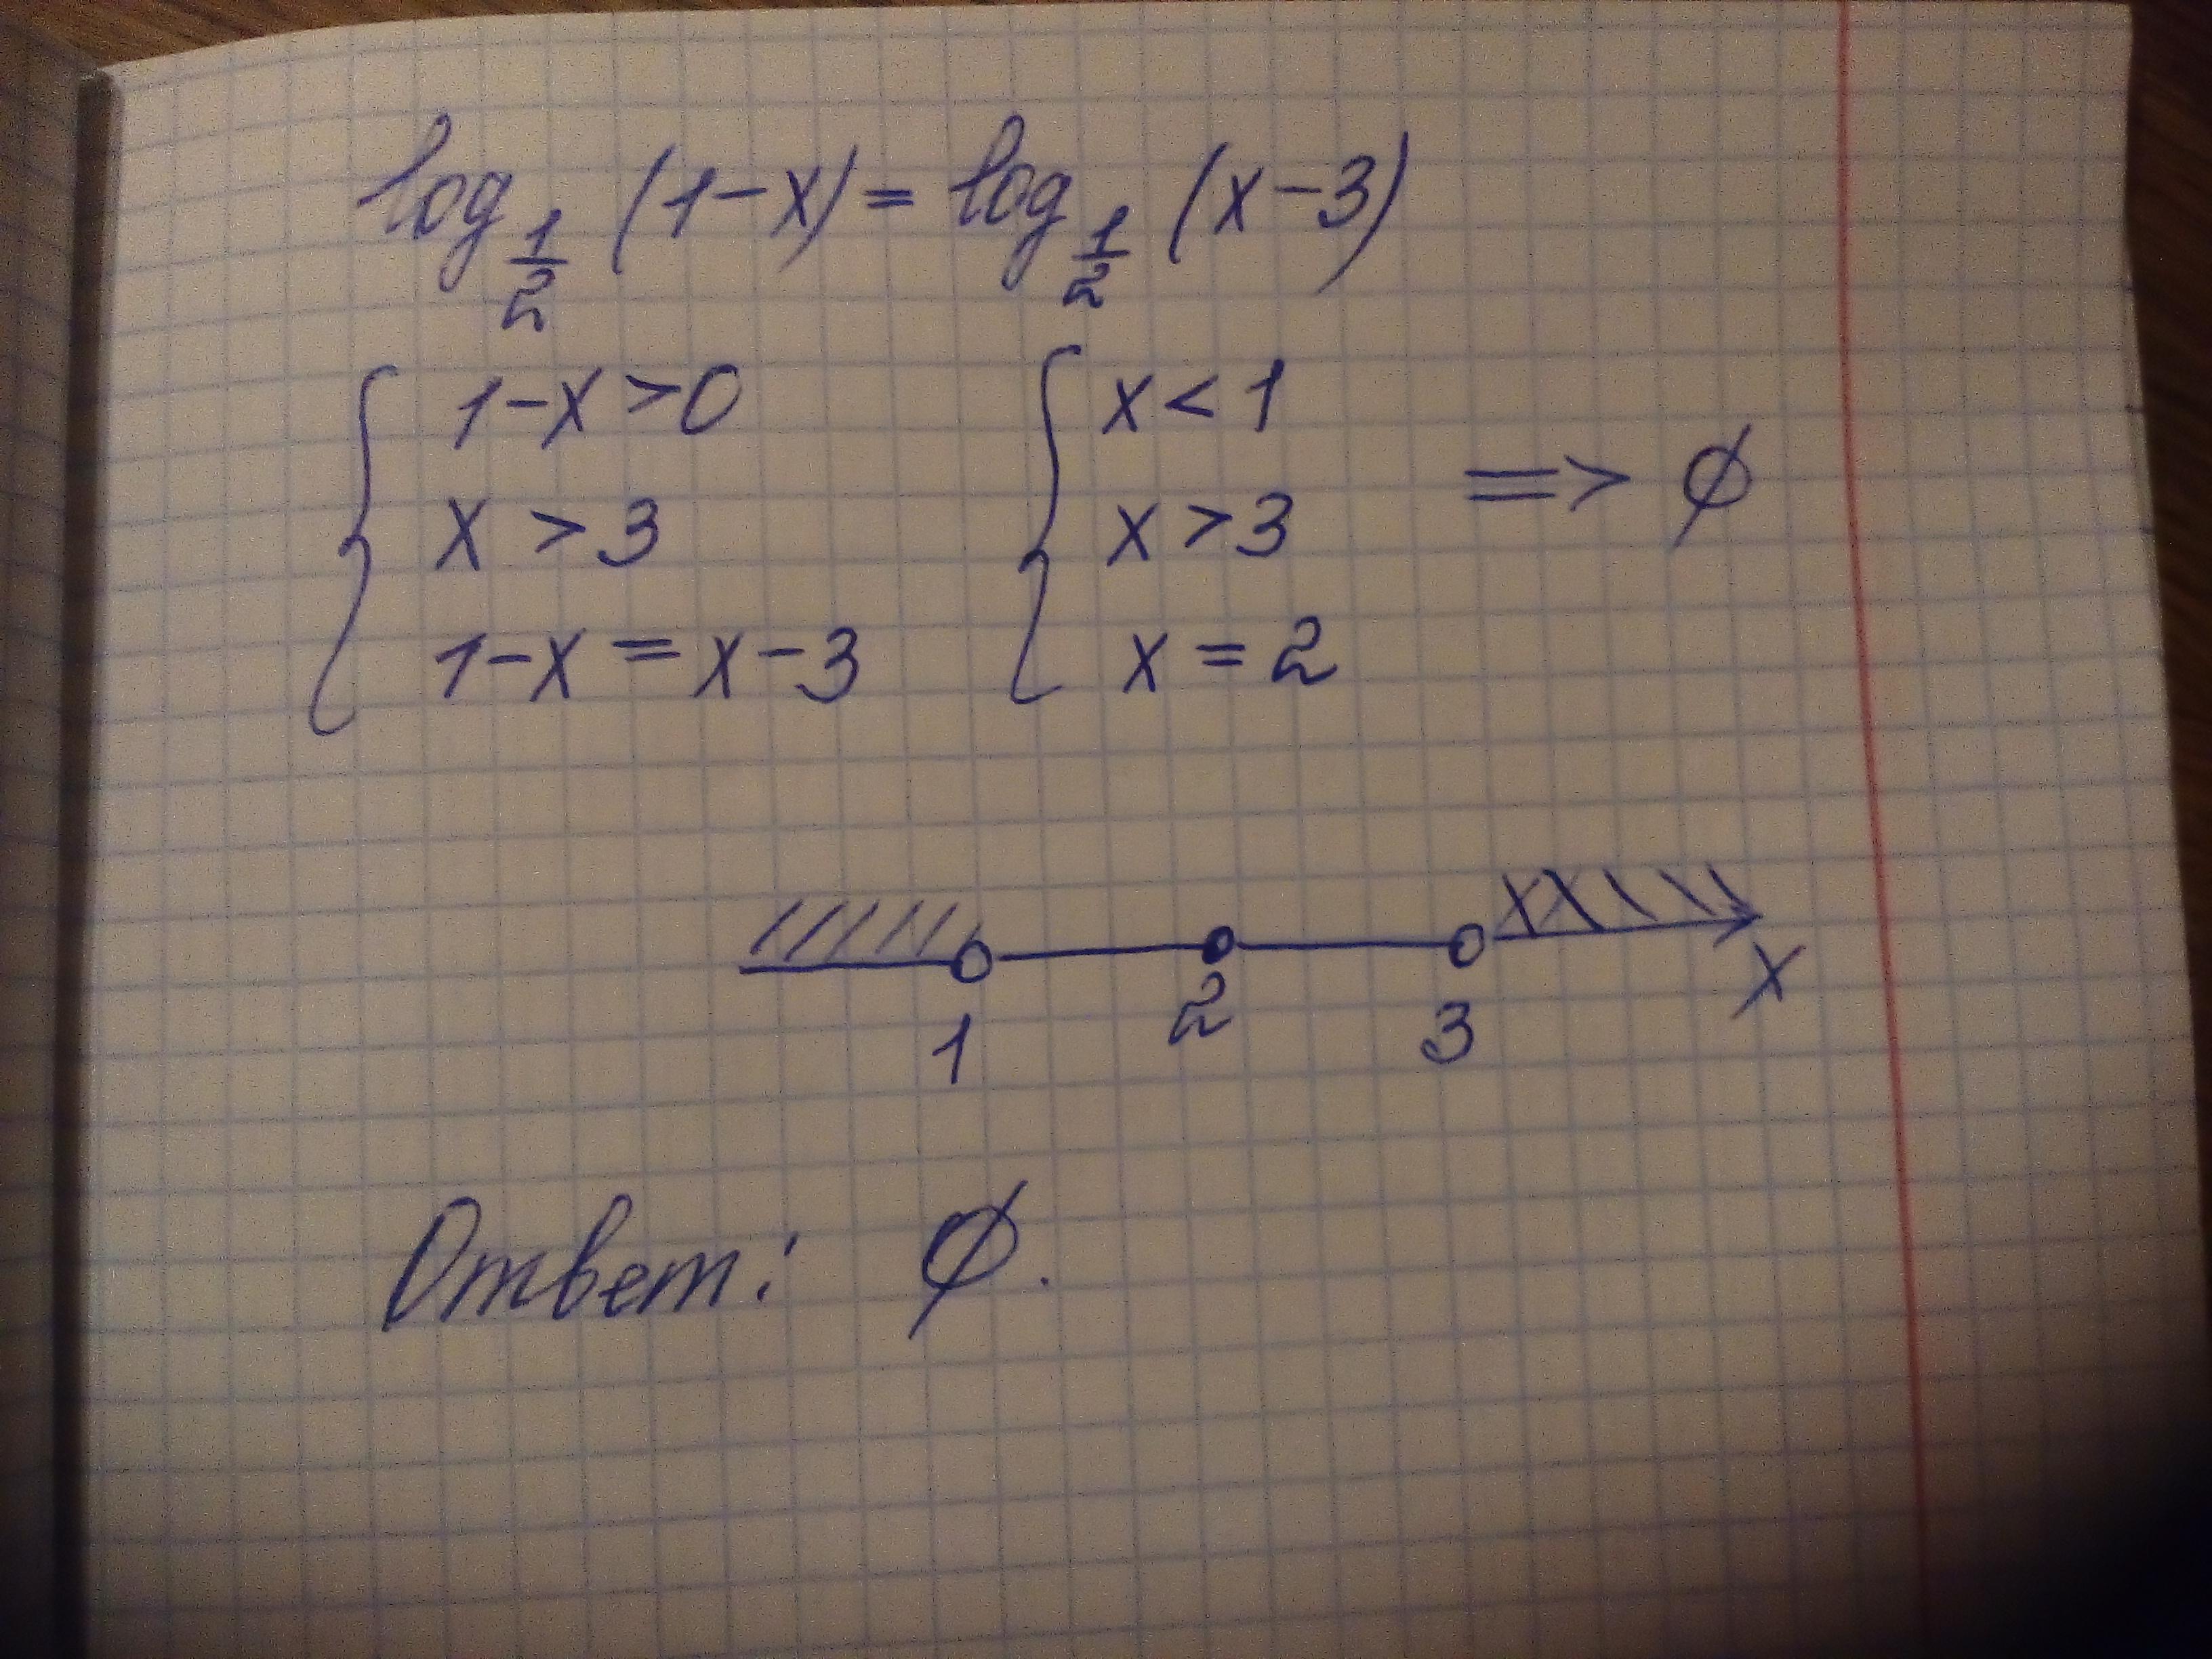 log 1/2 (1-x) = log 1/2 (x-3)
{ 1-x > 0 { x < 1
x > 3 x > 3 => ∅
1-x = x-3 x = 2
1 2 3 x
Ответ: ∅.